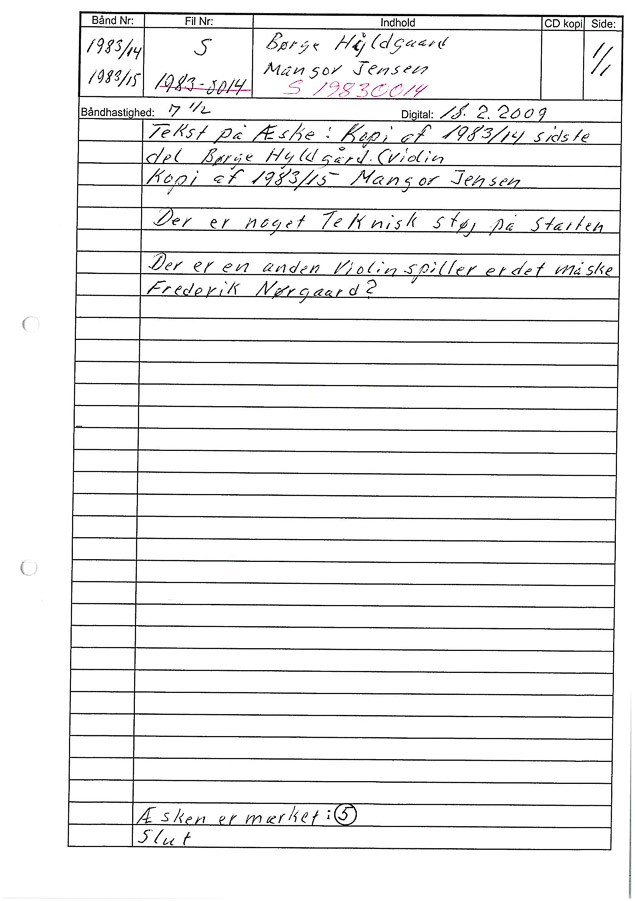 Bånd Nr: Fil Nr: Indhold CD kopi Side:
1983/14 S Børge Hyldgaard 1/1
1983/15 1983-0014 Mangor Jensen
S 19830014
Båndhastighed: 7 1/2 Digital: 18.2.2009
Tekst på Æske: Kopi af 1983/14 sidste
del Børge Hyldgård. (Violin
Kopi af 1983/15 Mangor Jensen
Der er noget Teknisk støj på starten
Der er en anden Violinspiller er det måske
Frederik Nørgaard?
Æsken er mærket: 5
Slut